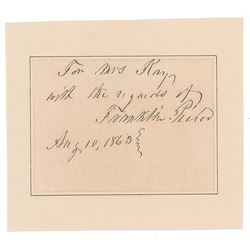 For Mrs Kay
with the regards of
Franklin Pierce
Aug, 10, 1863